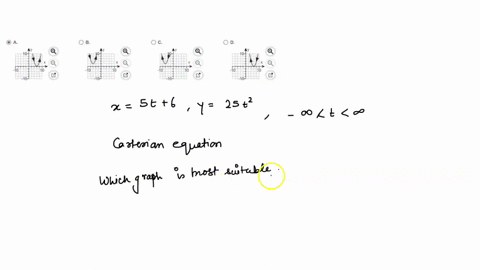 A. B. C. D.
x = 5t+6 , y = 25t² , -∞ < t < ∞
Carterian equation
Which graph is most suitable.